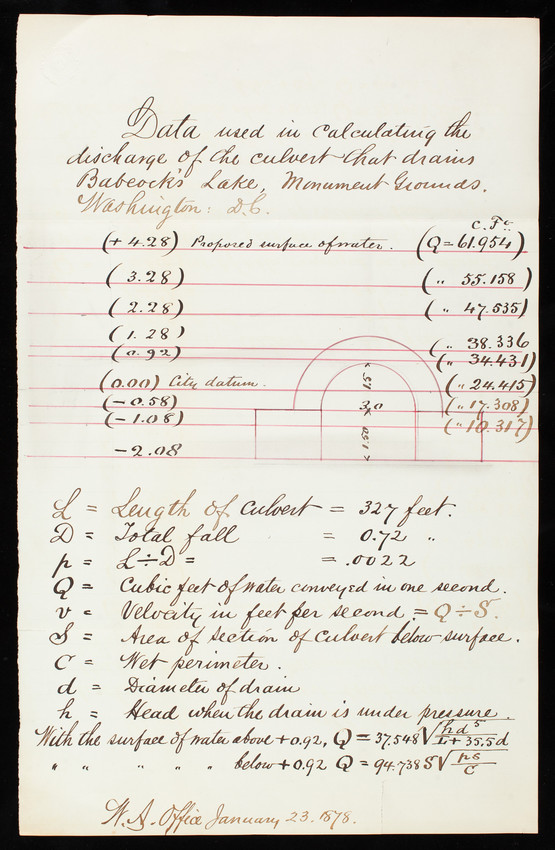 Data used in calculating the
discharge of the culvert that drains
Babcock's Lake, Monument Grounds.
Washington: D.C.
C. Ft.
(+ 4.28) Proposed surface of water. (Q = 61.954)
(3.28) (" 55.158)
(2.28) (" 47.535)
(1.28) (" 38.336
(0.92) (" 34.431)
(0.00) City datum. (" 24.415)
(- 0.58) (" 17.308)
(- 1.08) (" 10.317)
- 2.08
1.5
3.0
1.50
L = Length of culvert = 327 feet.
D = Total fall = 0.72 "
p = L ÷ D = = .0022
Q = Cubic feet of water conveyed in one second.
v = Velocity in feet per second. = Q ÷ S.
S = Area of section of culvert below surface.
C = Wet perimeter.
d = Diameter of drain
h = Head when the drain is under pressure.
With the surface of water above + 0.92, Q = 37.548 √(hd⁵ / L + 35.5d)
" " " " " below + 0.92 Q = 94.738 S √(ps / C)
W. A. Office January 23. 1878.